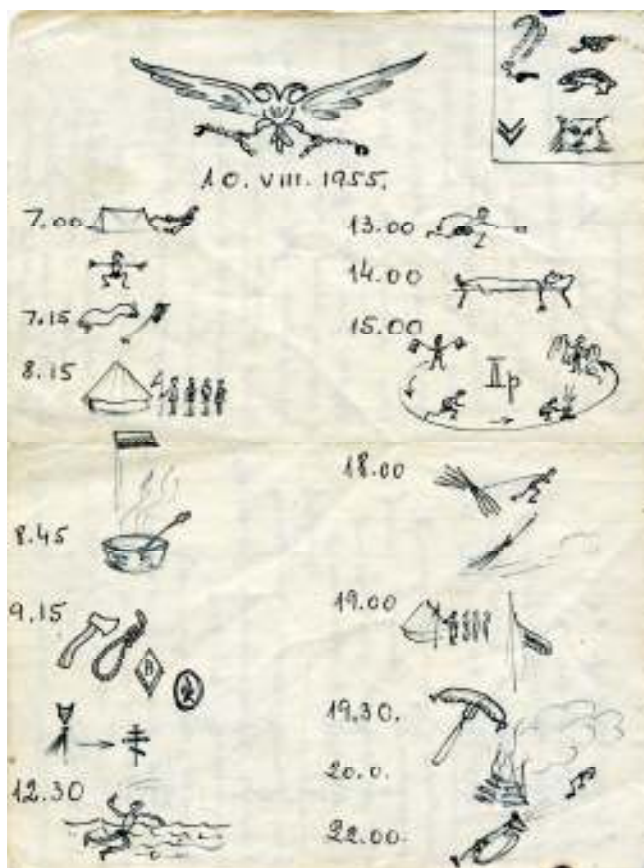 10. VIII. 1955.
7.00
7.15
8.15
8.45
9.15
12.30
13.00
14.00
15.00
IIр
18.00
19.00
19.30.
20.0.
22.00.